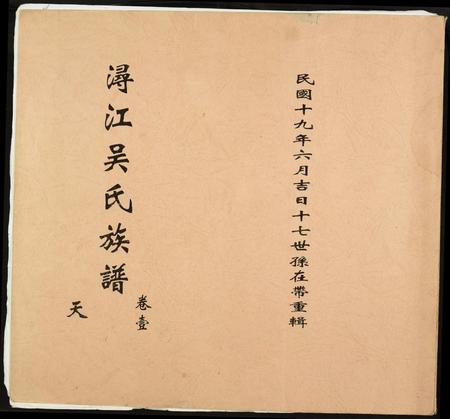 民國十九年六月吉日十七世孫在帶重輯
潯江吴氏族譜
卷壹
天